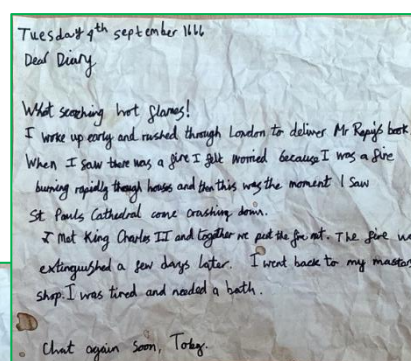 Tuesday 4th september 1666
Dear Diary
What scorching hot flames!
I woke up early and rushed through London to deliver Mr Repip's book
When I saw there was a fire I felt worried because I was a fire
burning rapidly though houses and then this was the moment I saw
St Pauls Cathedral come crashing down.
I Met King Charles II and together we put the fire out. The fire wa
extinguished a few days later. I went back to my masters
shop. I was tired and needed a bath.
Chat again soon, Toby.